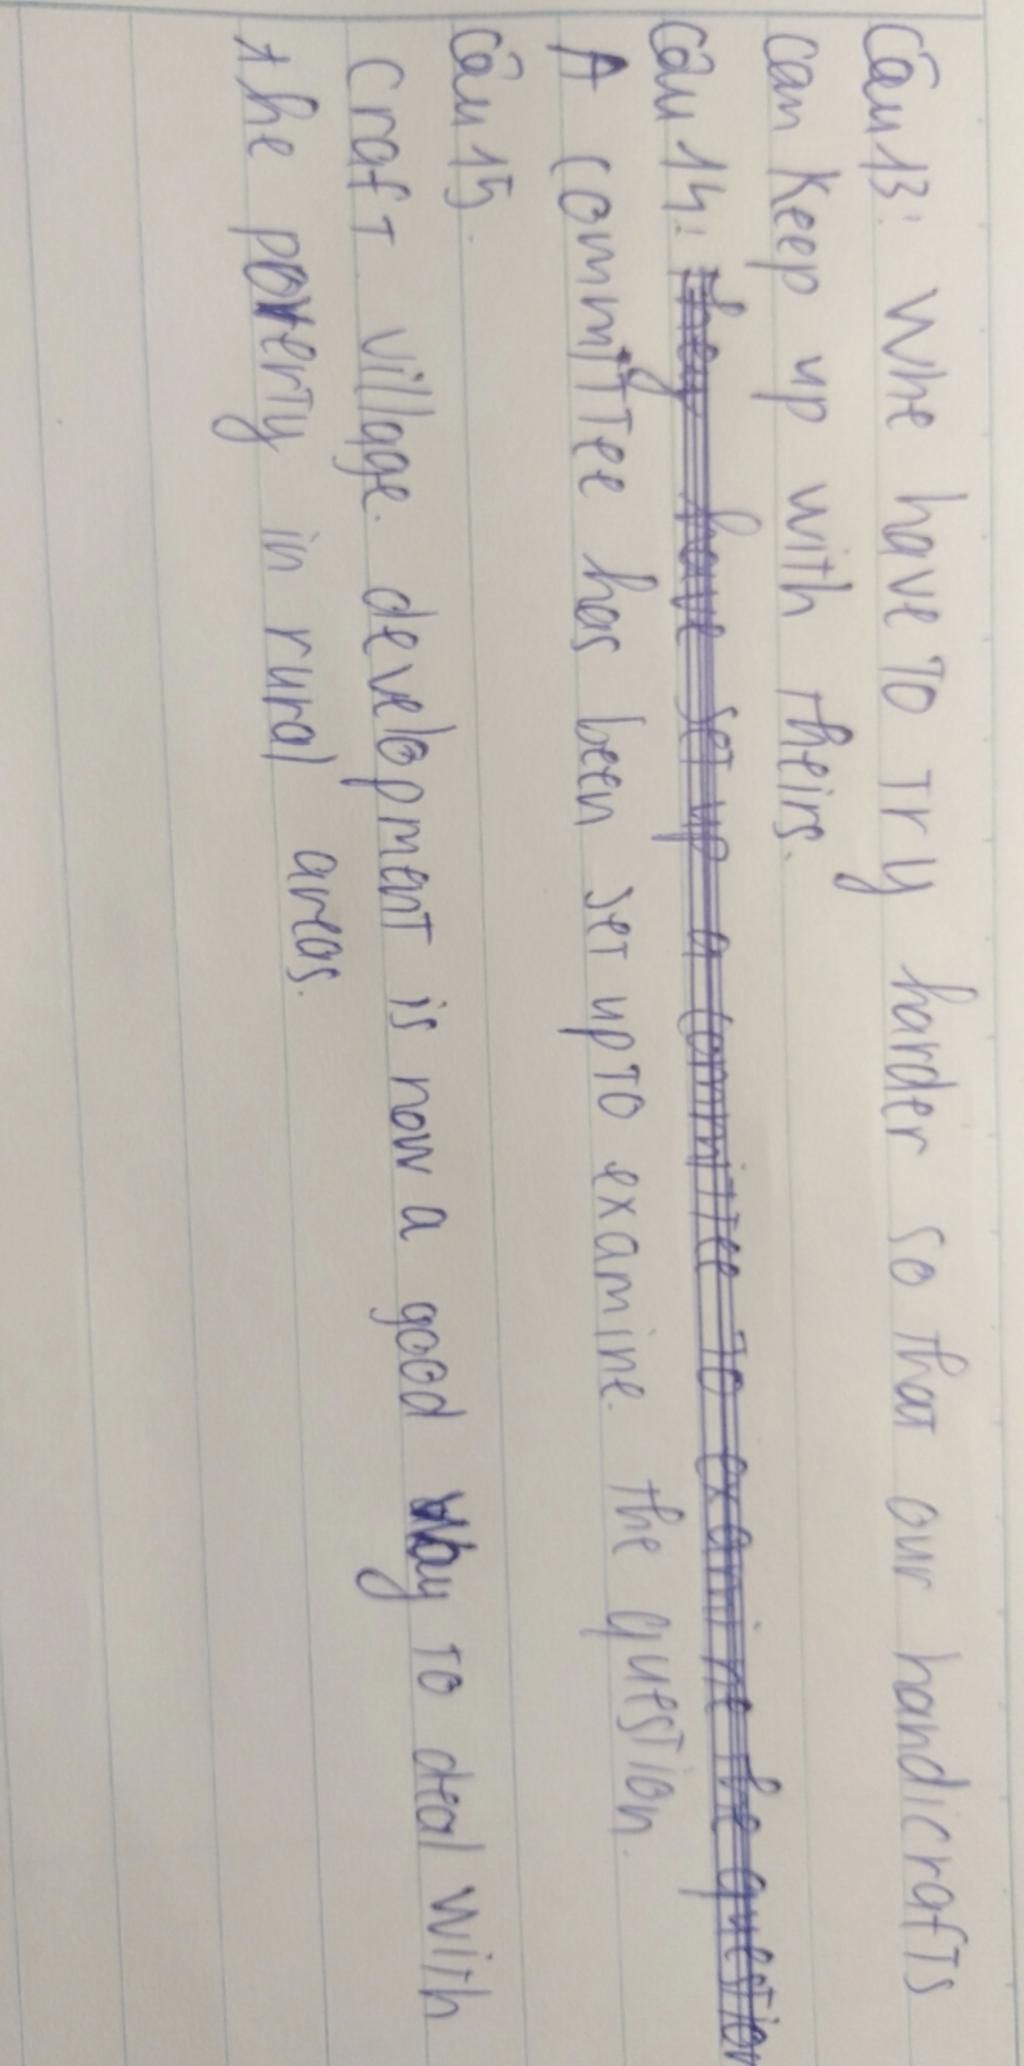 Câu 13: Whe have to try harder so that our handicrafts
can keep up with theirs.
Câu 14: they have set up a committee to examine the question
A committee has been set up to examine. the question.
Câu 15.
Craft village. development is now a good way to deal with
the poverty in rural areas.